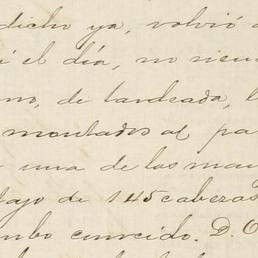 dicho ya, volvió a
i el día, no sien
no, de tardeada, l
montados al pa
una de las man
ajo de 145 cabezas
mbo conocido. D. O